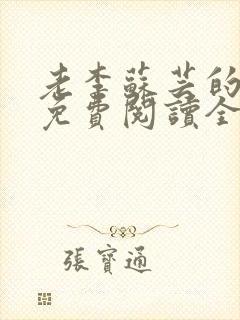 老李蘇芸的
免費閱讀全
張寶通